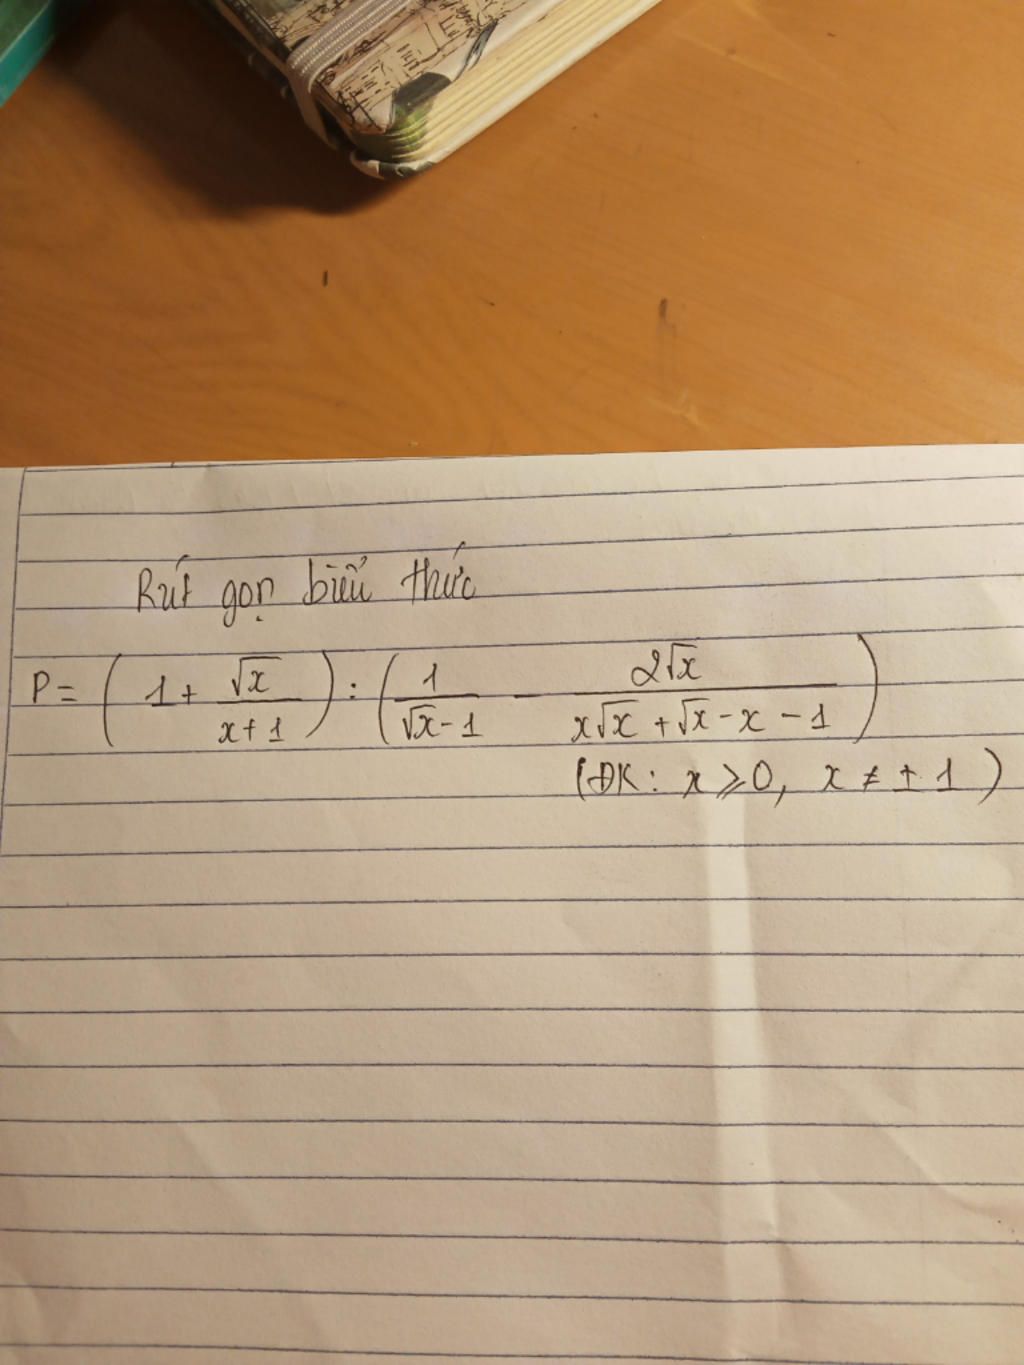 Rút gọn biểu thức
P = ( 1 + √x / x+1 ) : ( 1 / √x - 1 - 2√x / x√x + √x - x - 1 )
(ĐK : x ⩾ 0, x ≠ ± 1 )